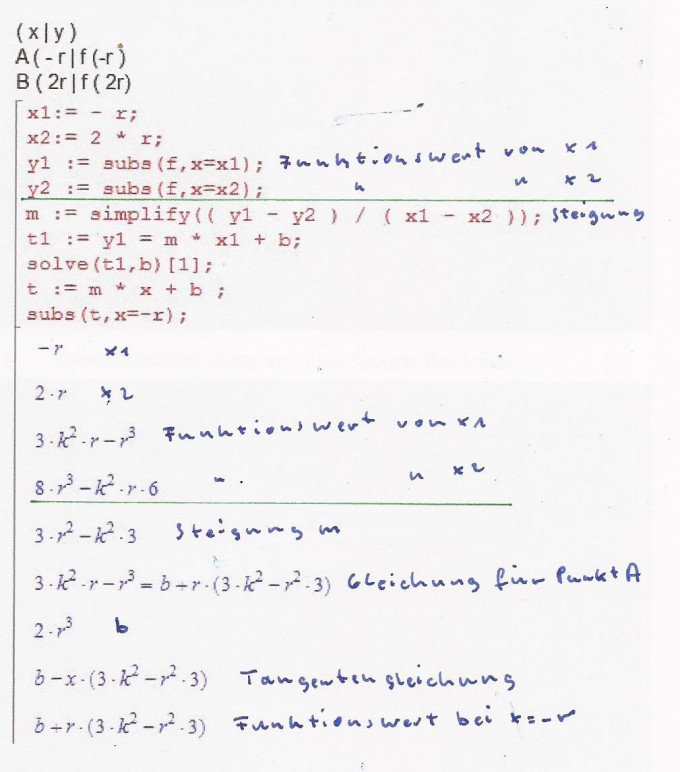 (x|y)
A(-r|f(-r)
B(2r|f(2r)
x1:= - r;
x2:= 2 * r;
y1 := subs(f,x=x1); Funktionswert von x1
y2 := subs(f,x=x2); " " x2
m := simplify(( y1 - y2 ) / ( x1 - x2 )); Steigung
t1 := y1 = m * x1 + b;
solve(t1,b)[1];
t := m * x + b ;
subs(t,x=-r);
-r x1
2·r x2
3·k²·r-r³ Funktionswert von x1
8·r³-k²·r·6 " " x2
3·r²-k²·3 Steigung m
3·k²·r-r³=b+r·(3·k²-r²·3) Gleichung für Punkt A
2·r³ b
b-x·(3·k²-r²·3) Tangentengleichung
b+r·(3·k²-r²·3) Funktionswert bei x=-r